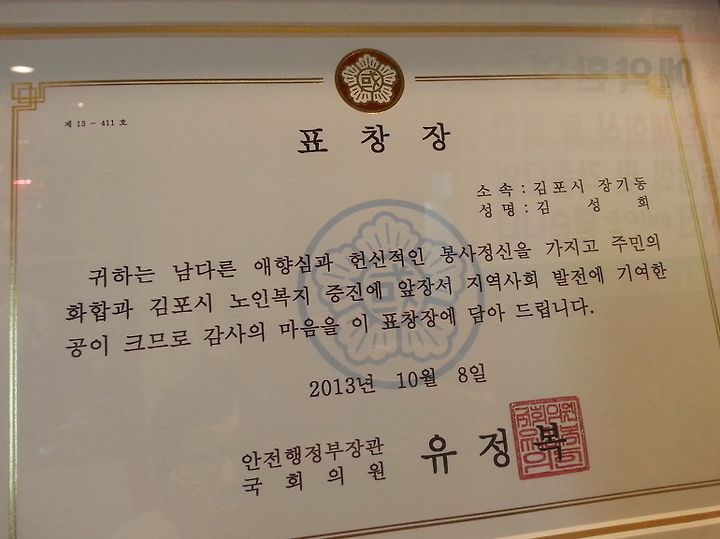 제 13 - 411 호
표 창 장
소 속 : 김포시 장기동
성 명 : 김 성 희
귀하는 남다른 애향심과 헌신적인 봉사정신을 가지고 주민의
화합과 김포시 노인복지 증진에 앞장서 지역사회 발전에 기여한
공이 크므로 감사의 마음을 이 표창장에 담아 드립니다.
2013년 10월 8일
안전행정부장관
국 회 의 원
유 정 복